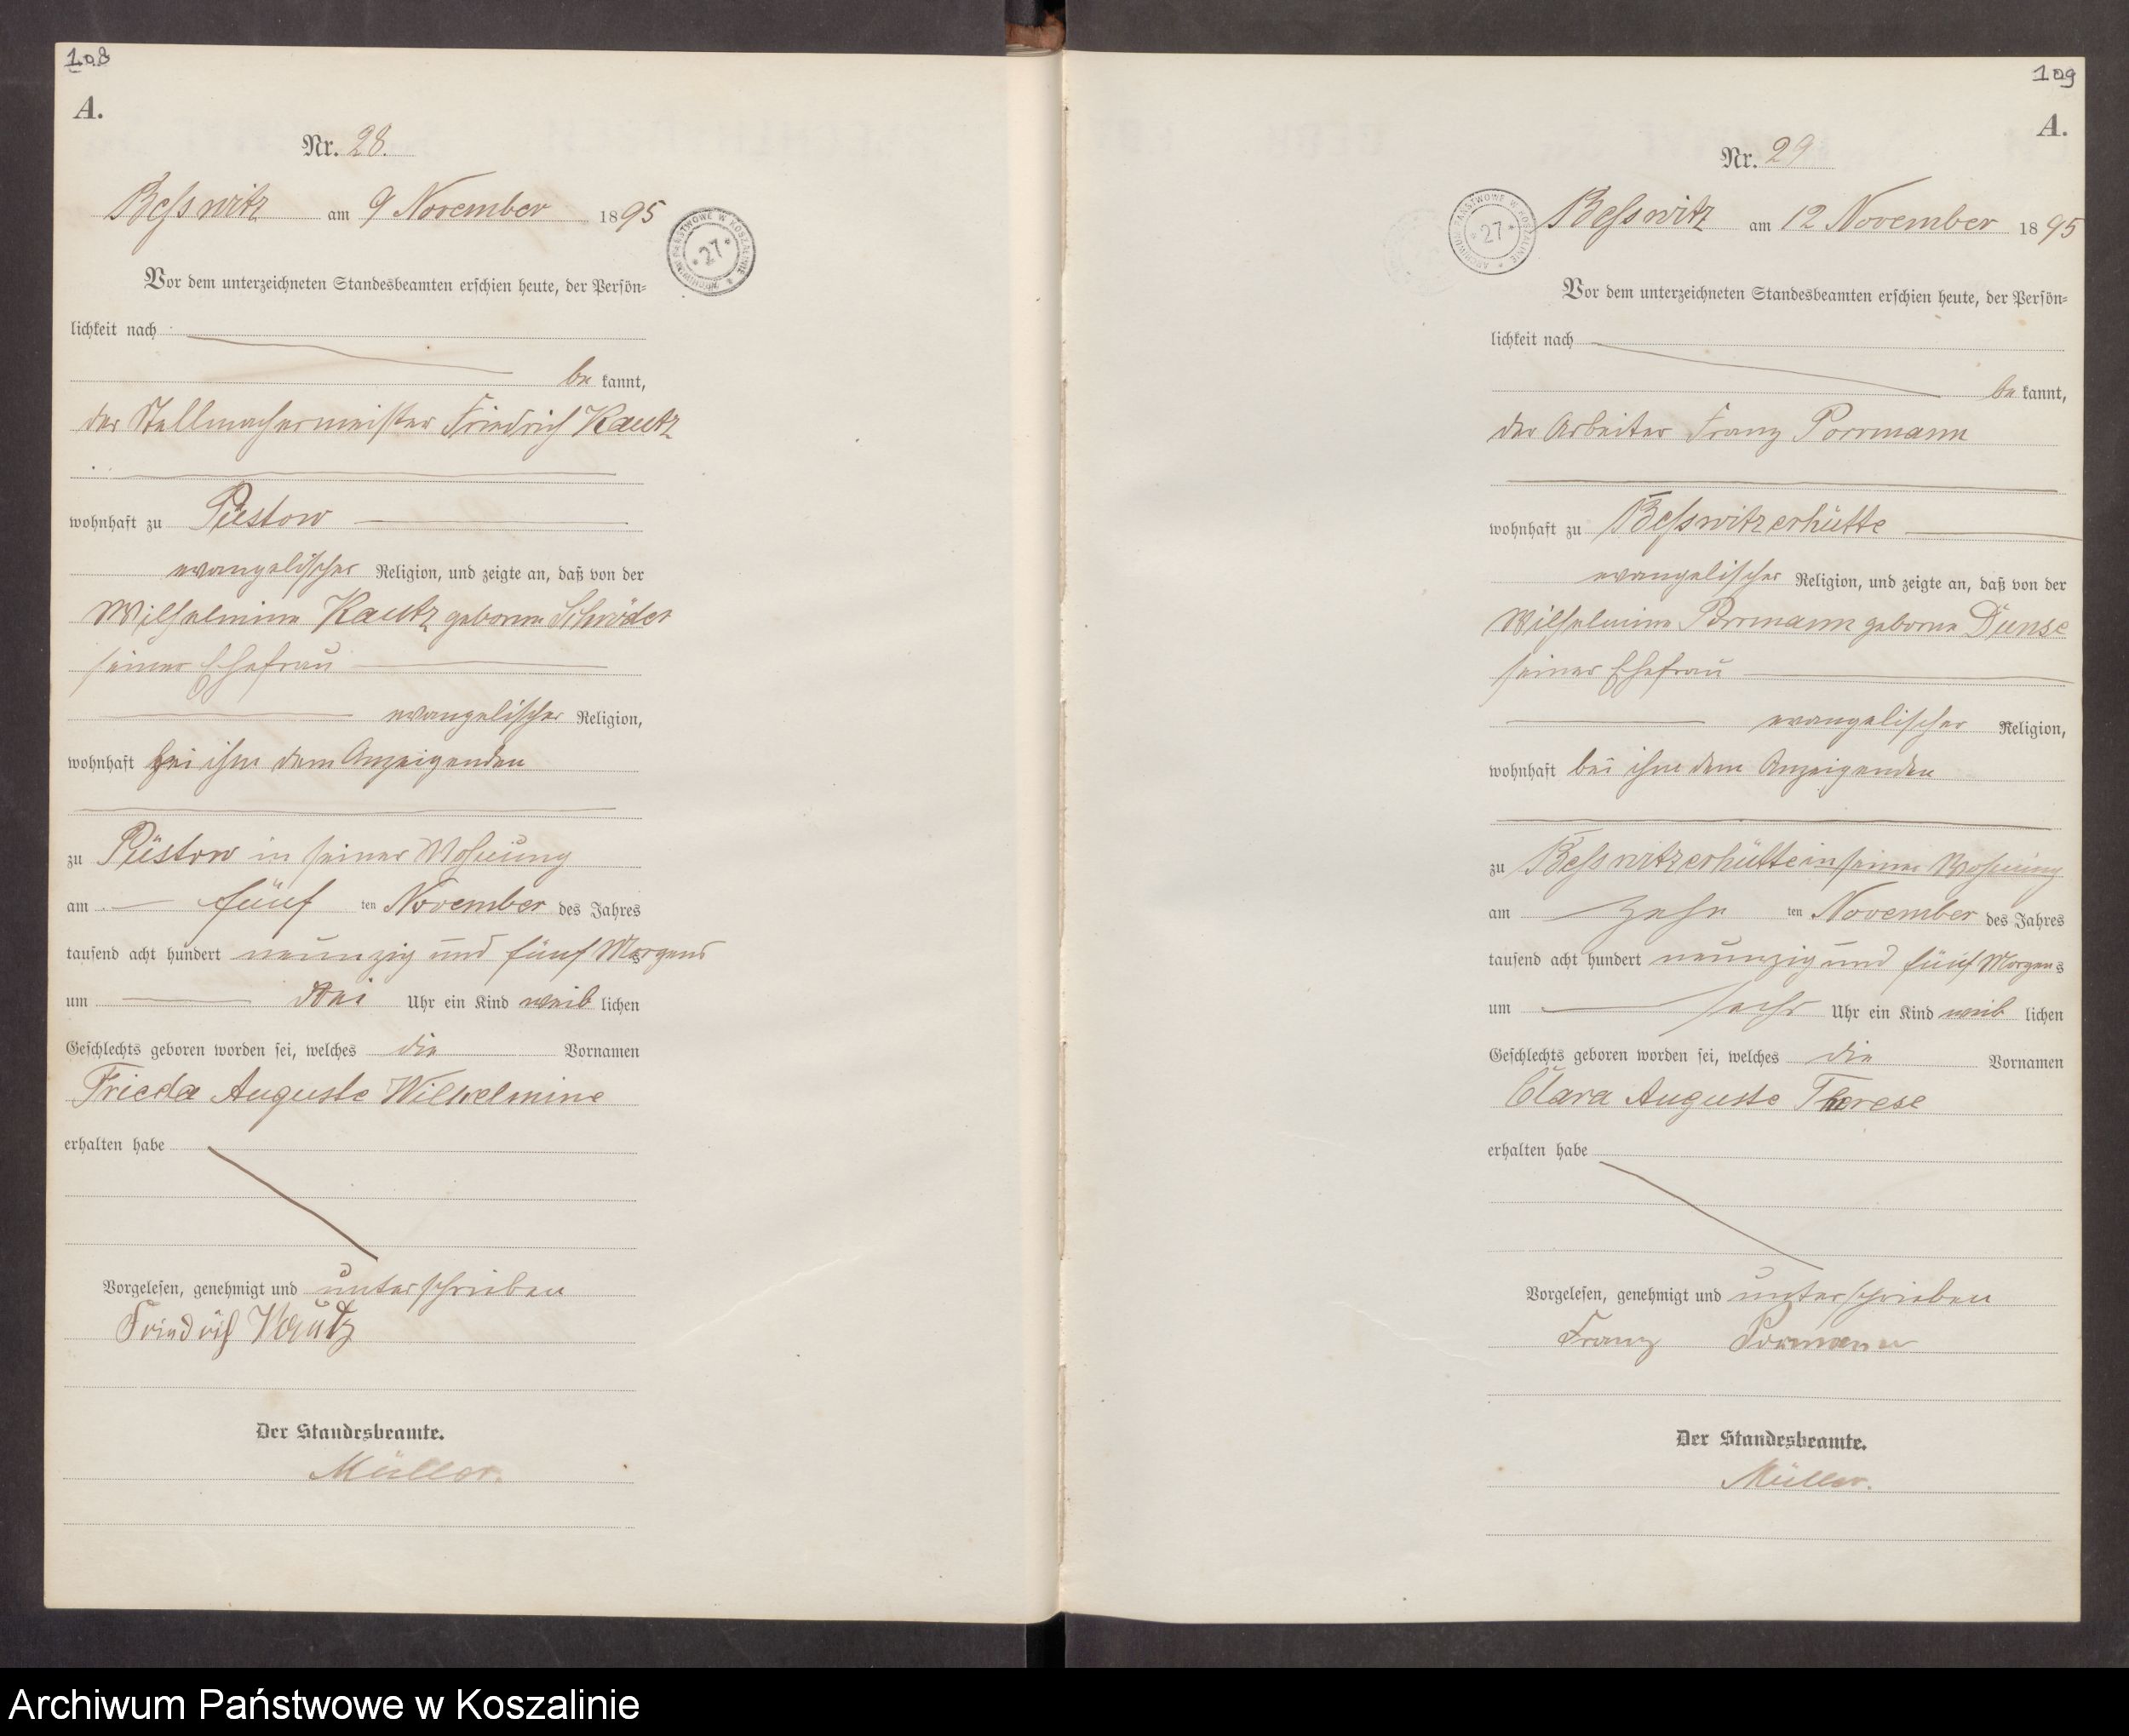 108
A.
Nr. 28.
Besswitz am 9 November 1895
ARCHIWUM PAŃSTWOWE W KOSZALINIE * 27 *
Vor dem unterzeichneten Standesbeamten erschien heute, der Persön=
lichkeit nach
be kannt,
der Stellmachermeister Friedrich Kautz
wohnhaft zu Püstow
evangelischer Religion, und zeigte an, daß von der
Wilhelmine Kautz geborne Schröder
seiner Ehefrau
evangelischer Religion,
wohnhaft bei ihm dem Anzeigenden
zu Püstow in seiner Wohnung
am fünf ten November des Jahres
tausend acht hundert neunzig und fünf Morgens
um drei Uhr ein Kind weib lichen
Geschlechts geboren worden sei, welches die Vornamen
Frieda Auguste Wilhelmine
erhalten habe
Vorgelesen, genehmigt und unterschrieben
Friedrich Kautz
Der Standesbeamte.
Müller.
109
A.
Nr. 29
ARCHIWUM PAŃSTWOWE W KOSZALINIE * 27 *
Besswitz am 12 November 1895
Vor dem unterzeichneten Standesbeamten erschien heute, der Persön=
lichkeit nach
be kannt,
der Arbeiter Franz Porrmann
wohnhaft zu Besswitzerhütte
evangelischer Religion, und zeigte an, daß von der
Wilhelmine Porrmann geborne Dunse
seiner Ehefrau
evangelischer Religion,
wohnhaft bei ihm dem Anzeigenden
zu Besswitzerhütte in seiner Wohnung
am zehn ten November des Jahres
tausend acht hundert neunzig und fünf Morgens
um sechs Uhr ein Kind weib lichen
Geschlechts geboren worden sei, welches die Vornamen
Clara Auguste Therese
erhalten habe
Vorgelesen, genehmigt und unterschrieben
Franz Pormann
Der Standesbeamte.
Müller.
Archiwum Państwowe w Koszalinie